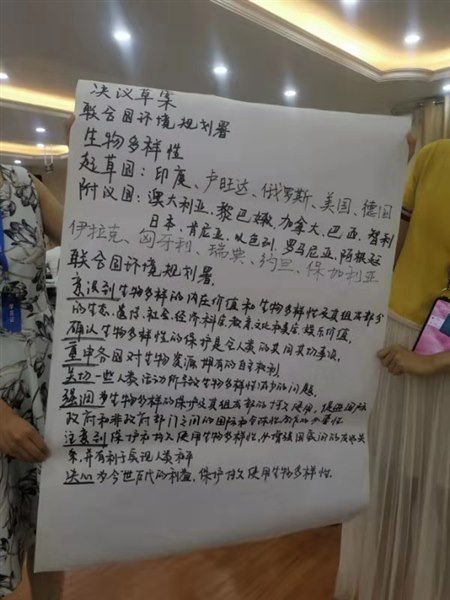 决议草案
联合国环境规划署
生物多样性
起草国：印度、卢旺达、俄罗斯、美国、德国
附议国：澳大利亚、黎巴嫩、加拿大、巴西、智利
日本、肯尼亚、以色列、罗马尼亚、阿根廷
伊拉克、匈牙利、瑞典、约旦、保加利亚
联合国环境规划署，
意识到生物多样的内在价值和生物多样性及其组成部分
的生态、遗传、社会、经济科学教育文化和美学娱乐价值，
确认生物多样性的保护是全人类的共同关切事项，
重申各国对生物资源拥有的自主权利
关切一些人类活动所导致生物多样性减少的问题，
强调生多样的保护及其组成部的持久使用，促进国际
政府和非政府部门之间的国际和合作的重要性
注意到保护和持久使用生物多样性，外增强国家间的友好关
系，并有利于实现人类和平
决心为今世后代的利益，保护持久使用生物多样性．